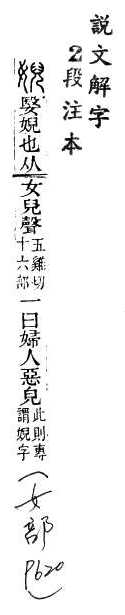 說文解字
2段注本
婗 嫛婗也从女兒聲五雞切十六部一曰婦人惡皃此則專謂婗字(女部 P620)